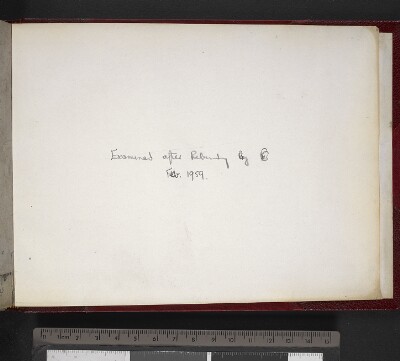 Examined after Rebinding by
Feb. 1959.